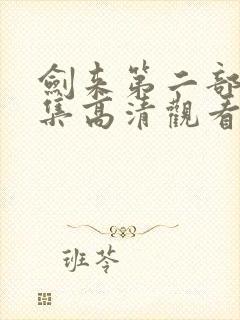 劍来第二部
集高清觀看
班苓